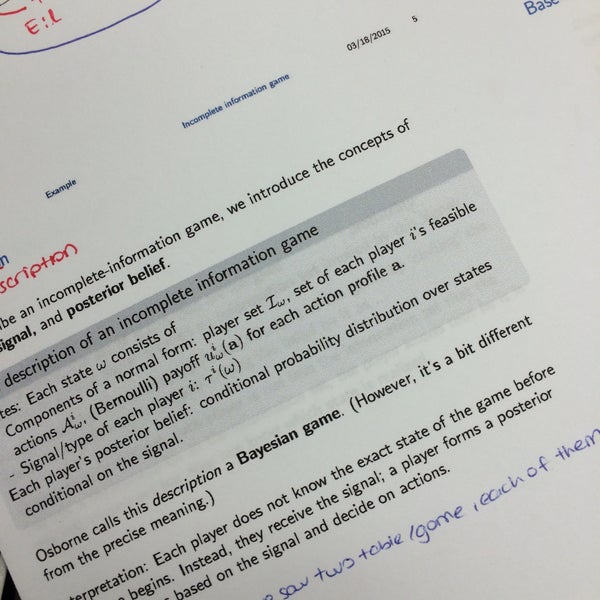 E:l
03/18/2015 5
Base
Incomplete information game
Example
scription
be an incomplete-information game, we introduce the concepts of
signal, and posterior belief.
description of an incomplete information game
tes: Each state ω consists of
Components of a normal form: player set I_ω, set of each player i's feasible
actions A^i_ω, (Bernoulli) payoff u^i_ω(a) for each action profile a.
- Signal/type of each player i: τ^i(ω)
Each player's posterior belief: conditional probability distribution over states
conditional on the signal.
Osborne calls this description a Bayesian game. (However, it's a bit different
from the precise meaning.)
terpretation: Each player does not know the exact state of the game before
begins. Instead, they receive the signal; a player forms a posterior
based on the signal and decide on actions.
saw two table/game, each of them